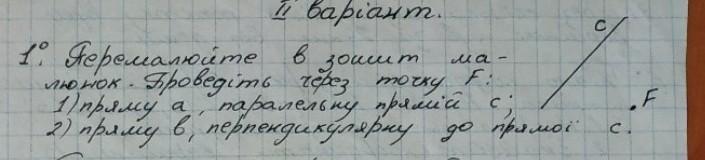 II варіант.
1°. Перемалюйте в зошит ма-
люнок. Проведіть через точку F:
1) пряму а, паралельну прямій с;
2) пряму в, перпендикулярну до прямої с.
с
F